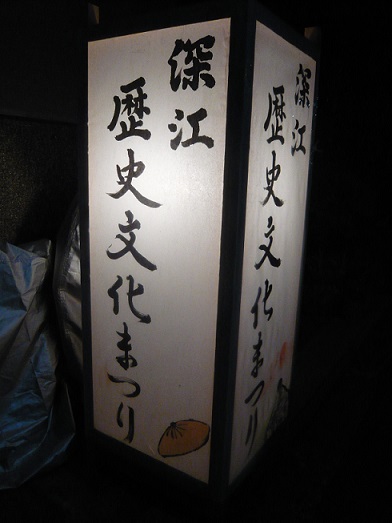 深江
歴史文化まつり
深江
歴史文化まつり